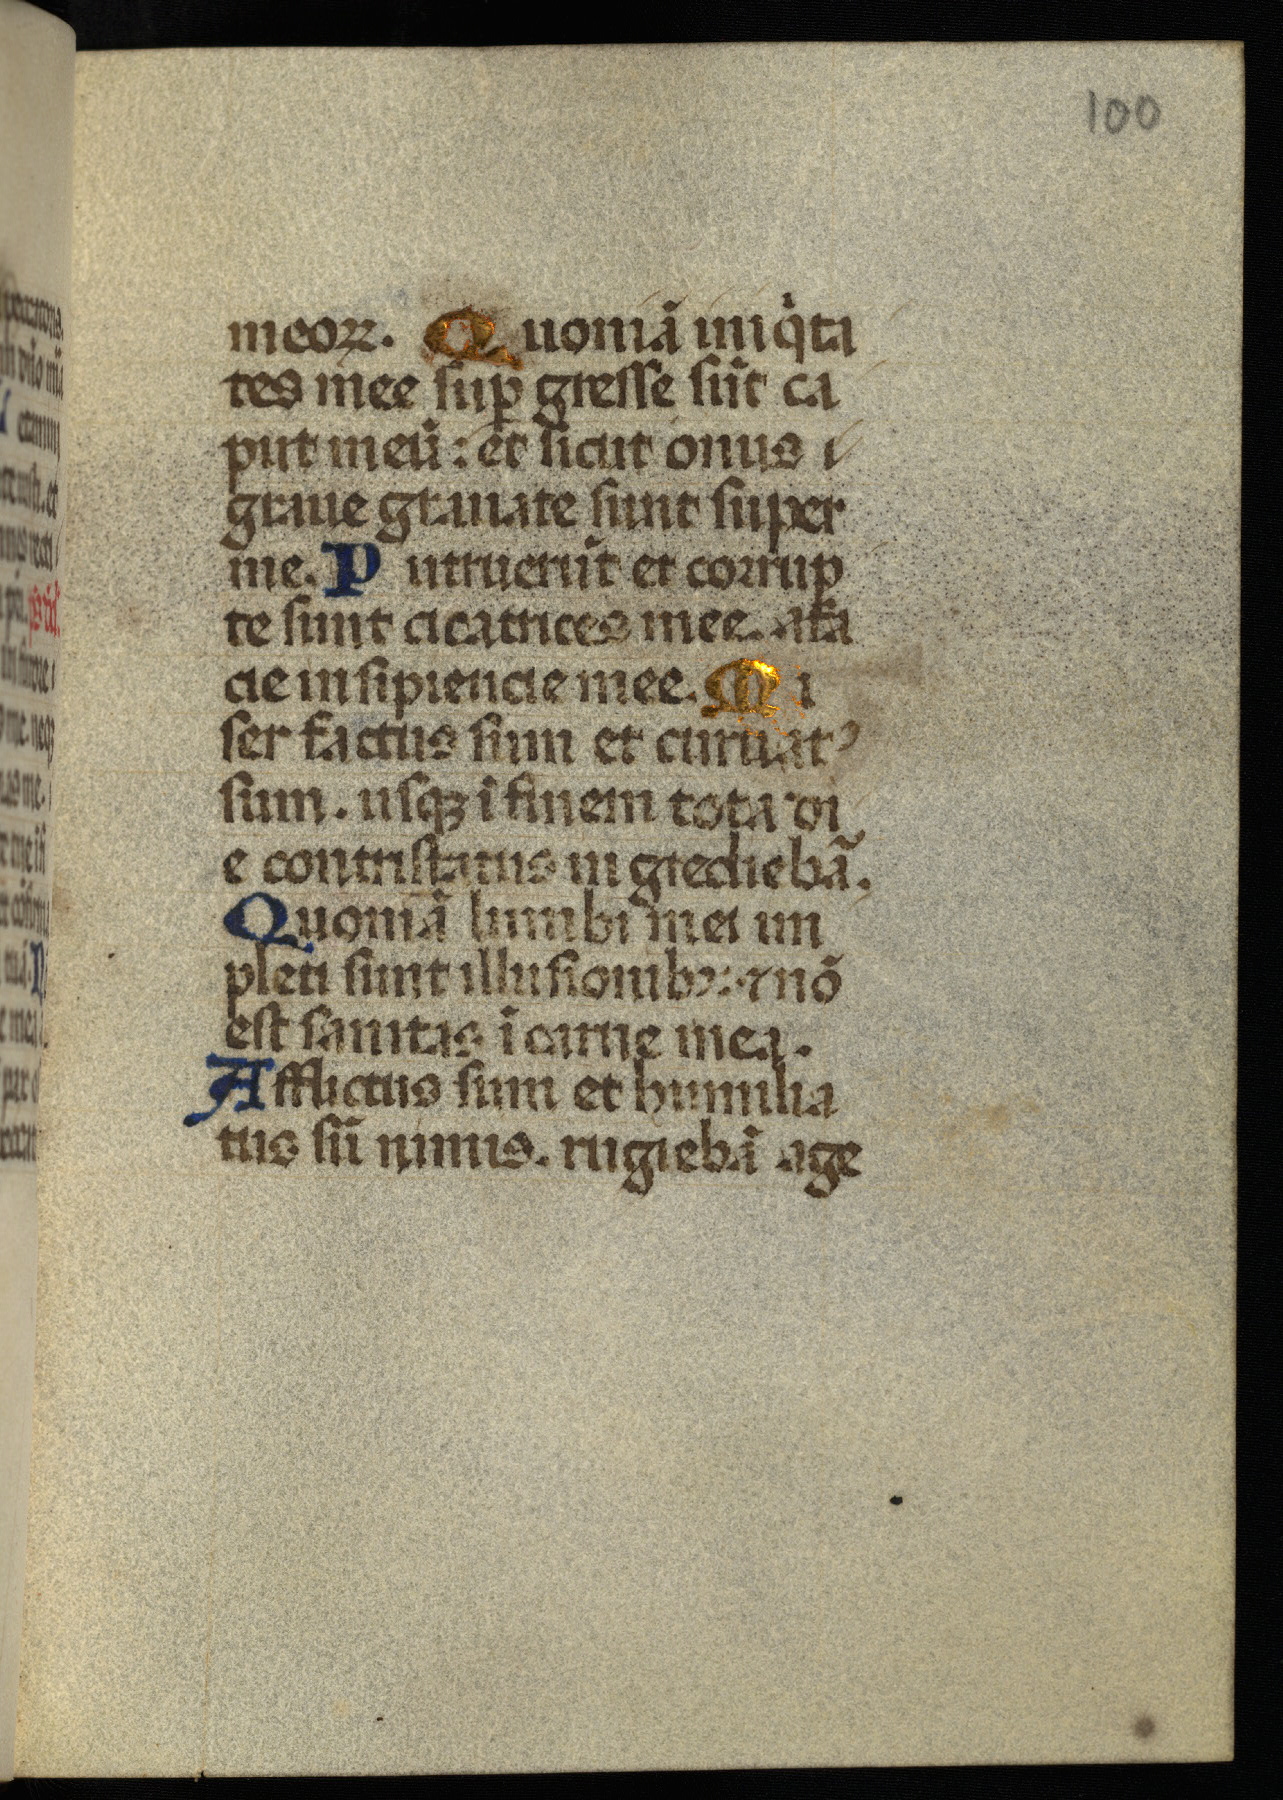 100
meoꝝ. Quoniã iniqͥta
tes mee suꝑ gresse sũt ca
put meũ: et sicut onus i
graue grauate sunt super
me. Putruerũt et corrup
te sunt cicatrices mee. afa
cie insipiencie mee. Mi
ser factus sum et curuatꝰ
sum. usqꝫ ĩ finem tota di
e contristatus in grediebã.
Quoniã lumbi mei im
pleti sunt illusionibꝫ: ⁊ nõ
est sanitas ĩ carne mea.
Afflictus sum et humilia
tus sũ nimis. rugiebã age